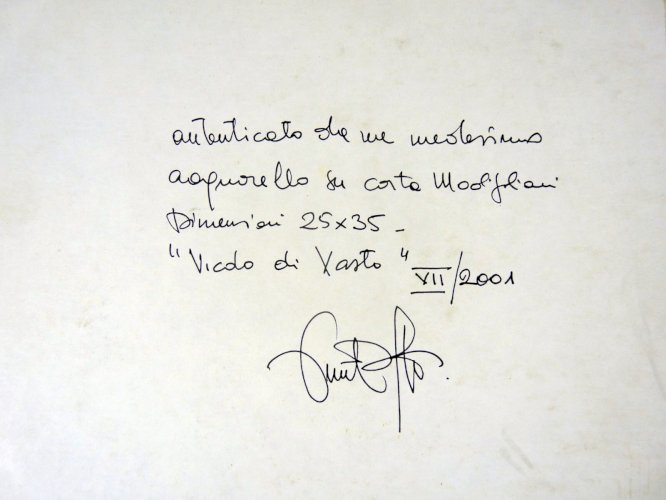 autenticato da me medesimo
acquarello su carta Modigliani
Dimensioni 25x35 -
"Vicolo di Vasto" VII/2001